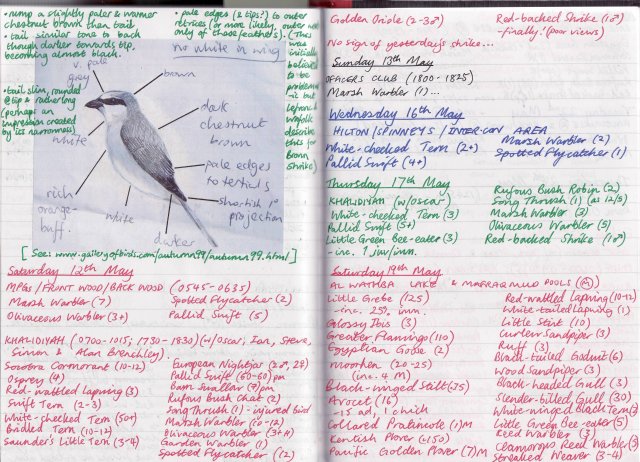 • rump a slightly paler & warmer
chestnut brown than tail.
• tail similar tone to back
though darker towards tip,
becoming almost black.
• tail slim, rounded
@ tip & rather long
(perhaps an
impression created
by its narrowness)
• pale edges (& tips?) to outer
retrices (or more likely, outer web
only of those feathers). (This
was
initially
believed
to be
problematic
but
Lefranc
Worfolk
describe
this for
Brown
Shrike)
no white in wing
v. pale
grey
brown
dark
chestnut
brown
white
pale edges
to tertials
shortish 1°
projection
rich
orange-
buff.
white
darker
[See: www.galleryofbirds.com/autumn99/autumn99.html]
Saturday 12th May
MPGs/FRONT WOOD/BACK WOOD (0545-0635)
Marsh Warbler (7)
Spotted Flycatcher (2)
Olivaceous Warbler (3+)
Pallid Swift (5)
KHALIDIYAH (0700-1015; 1730-1830) (w/Oscar, Ian, Steve,
Simon & Alan Brenchley.
Socotra Cormorant (10-12)
Osprey (4)
Red-wattled Lapwing (3)
Swift Tern (2-3)
White-cheeked Tern (50+)
Bridled Tern (10-12)
Saunder's Little Tern (3-4)
European Nightjar (2♂, 2♀)
Pallid Swift (60-60) pm
Barn Swallow (7) pm
Rufous Bush Chat (2)
Song Thrush (1) - injured bird
Marsh Warbler (10-12)
Olivaceous Warbler (3+)
Garden Warbler (1)
Spotted Flycatcher (12)
Golden Oriole (2-3♂)
Red-backed Shrike (1♂)
-finally! (poor views)
No sign of yesterday's shrike...
Sunday 13th May
OFFICERS CLUB (1800-1825)
Marsh Warbler (1)...
Wednesday 16th May
HILTON/SPINNEYS/INTER-CON AREA
White-cheeked Tern (2+)
Marsh Warbler (2)
Pallid Swift (4+)
Spotted Flycatcher (1)
Thursday 17th May
KHALIDIYAH (w/Oscar)
White-cheeked Tern (3)
Pallid Swift (5+)
Little Green Bee-eater (3)
-inc. 1 juv/imm.
Rufous Bush Robin (2)
Song Thrush (1) (as 12/5)
Marsh Warbler (3)
Olivaceous Warbler (5)
Red-backed Shrike (1♂)
Saturday 19th May
AL WATHBA LAKE & MAFRAQ MUD POOLS (A)
Little Grebe (125)
-inc. 25% imm.
Glossy Ibis (3)
Greater Flamingo (110)
Egyptian Goose (2)
Moorhen (20-25)
(inc. 4 M)
Black-winged Stilt (75)
Avocet (16)
-15 ad, 1 chick
Collared Pratincole (1) M
Kentish Plover (<150)
Pacific Golden Plover (7) M
Red-wattled Lapwing (10-12)
White-tailed Lapwing (1)
Little Stint (10)
Curlew Sandpiper (3)
Ruff (3)
Black-tailed Godwit (6)
Wood Sandpiper (3)
Black-headed Gull (3)
Slender-billed Gull (30)
White-winged Black Tern (3)
Little Green Bee-eater (5)
Reed Warbler (3)
Clamorous Reed Warbler (3)
Streaked Weaver (3-4)